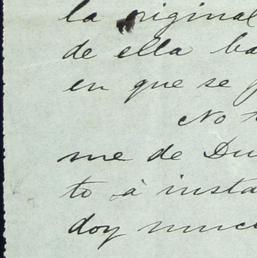 la original
de ella ba
en que se
No
me de Du
to á insta
doy